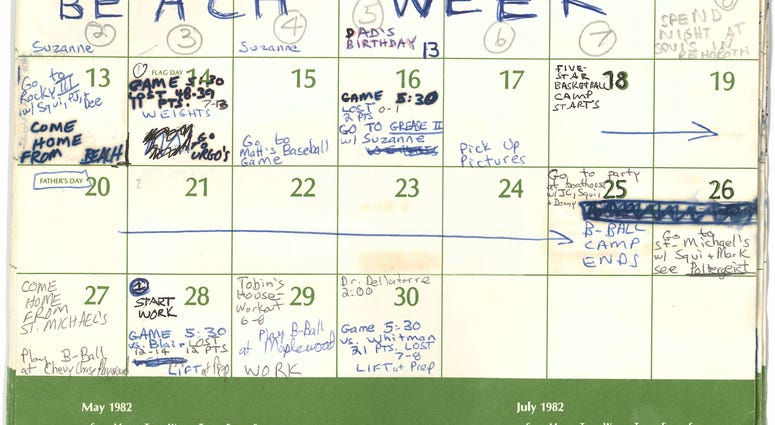 BEACH WEEK
2
3
4
5
6
7
Suzanne
Suzanne
DAD'S
BIRTHDAY 13
SPEND
NIGHT AT
SQUI'S IN
REHOBOTH
13
Go to
Rocky III
w/ Squi, PJ, +
Dee
COME
HOME
FROM BEACH
1
FLAG DAY 14
GAME 5:30
LOST 48-39
11 PTS. 7-13
WEIGHTS
GO
TO
URGO'S
15
Go to
Matt's Baseball
Game
16
GAME 5:30
LOST 0-1
2 PTS
GO TO GREASE II
w/ Suzanne
17
Pick Up
Pictures
18
FIVE-
STAR
BASKETBALL
CAMP
STARTS
19
FATHER'S DAY
20
2
21
22
23
24
25
Go to party
at boathouse
w/ JC, Squi,
+ Donny
B-BALL
CAMP
ENDS
26
Go to
St. Michael's
w/ Squi + Mark
see Poltergeist
27
COME
HOME
FROM
ST. MICHAEL'S
Play B-Ball
at Chevy Chase
28
START
WORK
GAME 5:30
vs. Blair LOST
12-14 12 PTS
LIFT at Prep
29
Tobin's
House-
Workout
6-8
Play B-Ball
at Maplewood
WORK
30
Dr.
2:00
Game 5:30
vs. Whitman
21 PTS. LOST
7-8
LIFT at Prep
May 1982
July 1982